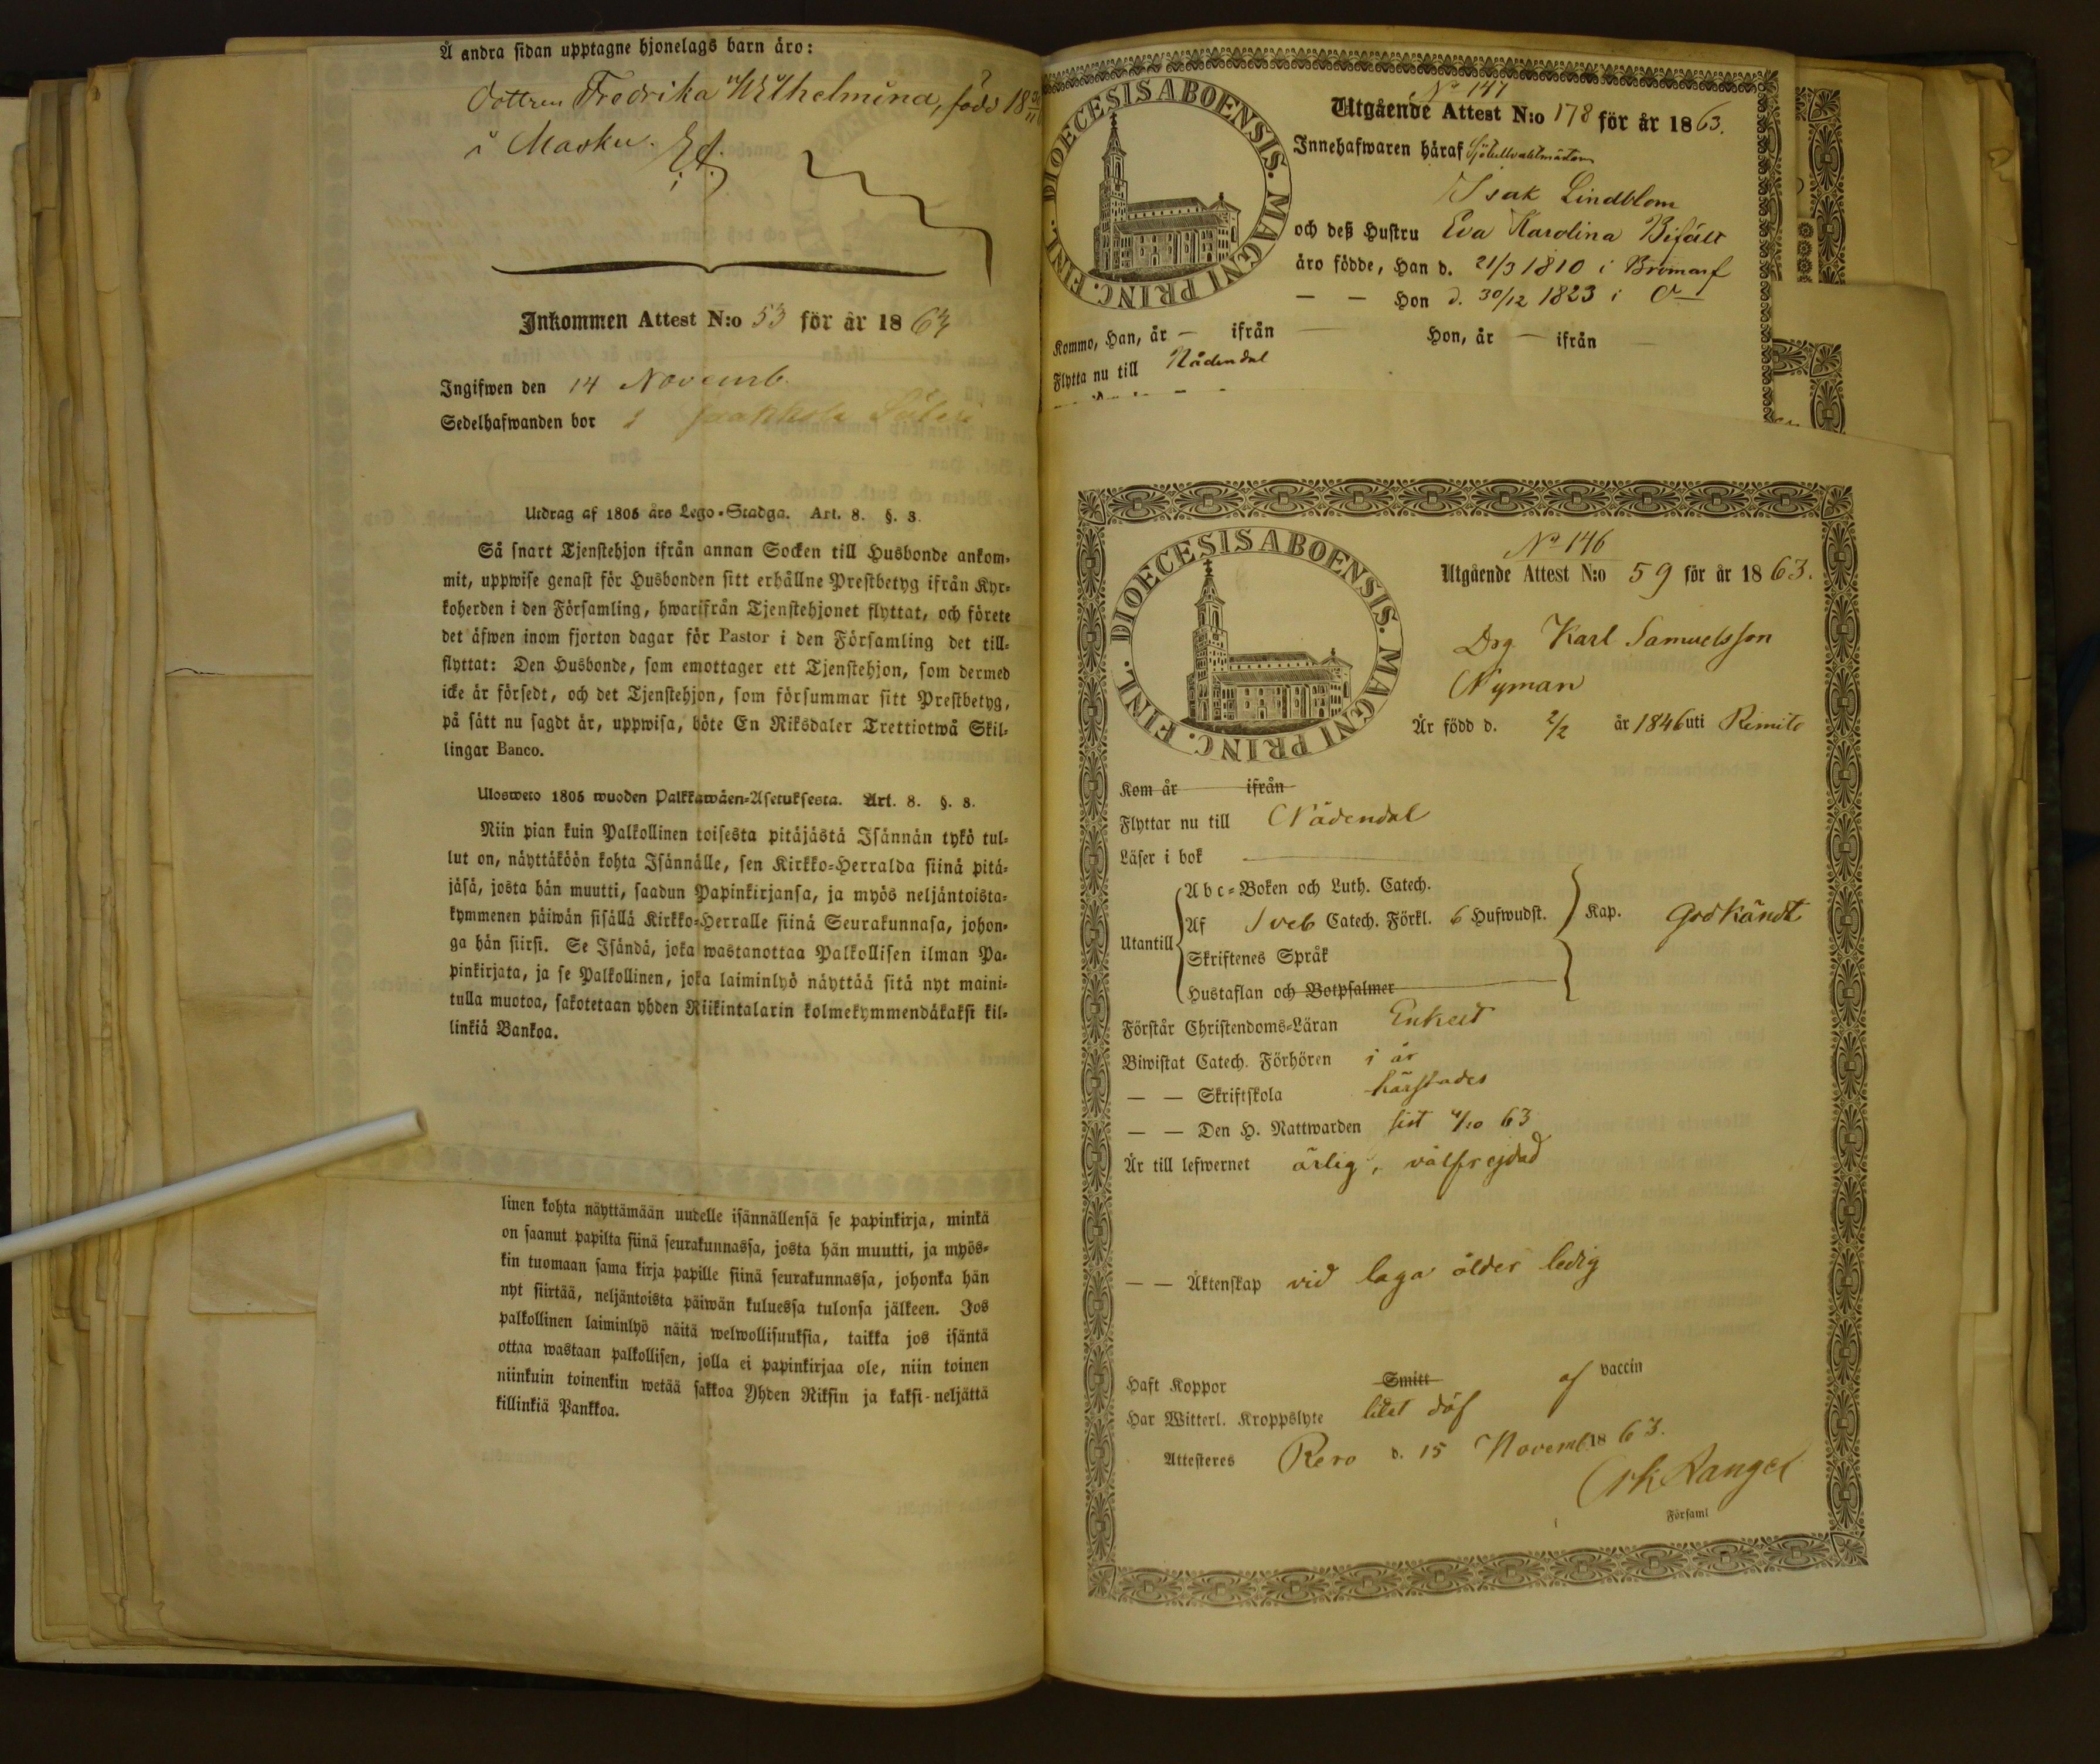 Å andra sidan upptagne hjonelags barn äro:
Dottren Fredrika Wilhelmina, född 18
i Masku.
Inkommen Attest N:o 53 för år 1864
Ingifwen den 14 Novemb.
Sedelhafwanden bor i
Utdrag af 1805 års Lego-Stadga. Art. 8. §. 3.
Så snart Tjenstehjon ifrån annan Socken till Husbonde ankom-
mit, uppwise genast för Husbonden sitt erhållne Prestbetyg ifrån Kyr-
koherden i den Församling, hwarifrån Tjenstehjonet flyttat, och förete
det äfwen inom fjorton dagar för Pastor i den Församling det till-
flyttat: Den Husbonde, som emottager ett Tjenstehjon, som dermed
icke är försedt, och det Tjenstehjon, som försummar sitt Prestbetyg,
på sätt nu sagdt är, uppwisa, böte En Riksdaler Trettiotwå Skil-
lingar Banco.
Ulosweto 1805 wuoden Palkkawäen-Asetuksesta. Art. 8. §. 3.
Niin pian kuin Palkollinen toisesta pitäjästä Isännän tykö tul-
lut on, näyttäköön kohta Isännälle, sen Kirkko-Herralda siinä pitä-
jäsä, josta hän muutti, saadun Papinkirjansa, ja myös neljäntoista-
kymmenen päiwän sisällä Kirkko-Herralle siinä Seurakunnasa, johon-
ga hän siirsi. Se Isändä, joka wastanottaa Palkollisen ilman Pa-
pinkirjata, ja se Palkollinen, joka laiminlyö näyttää sitä nyt maini-
tulla muotoa, sakotetaan yhden Riikintalarin kolmekymmendäkaksi kil-
linkiä Bankoa.
linen kohta näyttämään uudelle isännällensä se papinkirja, minkä
on saanut papilta siinä seurakunnassa, josta hän muutti, ja myös-
kin tuomaan sama kirja papille siinä seurakunnassa, johonka hän
nyt siirtää, neljäntoista päiwän kuluessa tulonsa jälkeen. Jos
palkollinen laiminlyö näitä welwollisuuksia, taikka jos isäntä
ottaa wastaan palkollisen, jolla ei papinkirjaa ole, niin toinen
niinkuin toinenkin wetää sakkoa Yhden Riksin ja kaksi-neljättä
killinkiä Pankkoa.
DIOECESIS ABOENSIS. MAGNI PRINC. FINL.
No 147
Utgående Attest N:o 178 för år 1863.
Innehafwaren häraf
Isak Lindblom
och deß Hustru Eva Karolina
äro födde, Han d. 21/3 1810 i Bromarf
— — Hon d. 30/12 1823 i
Kommo, Han, år — ifrån — Hon, år — ifrån —
Flytta nu till Nådendal
DIOECESIS ABOENSIS. MAGNI PRINC. FINL.
No 146
Utgående Attest N:o 59 för år 1863.
Drg. Karl Samuelsson
Nyman
Är född d. 2/2 år 1846 uti Rimito
Kom år ifrån
Flyttar nu till Nådendal
Läser i bok
Utantill
Abc-Boken och Luth. Catech.
Af Sveb Catech. Förkl. 6 Hufwudst. Kap. Godkändt
Skriftenes Språk
Hustaflan och Botpsalmer
Förstår Christendoms-Läran Enkelt
Biwistat Catech. Förhören i år
— — Skriftskola härstädes
— — Den H. Nattwarden sist 4/10 63
Är till lefwernet ärlig, välfrejdad
— — Äktenskap vid laga ålder ledig
Haft Koppor Smitt af vaccin
Har Witterl. Kroppslyte litet döf
Attesteres Reso d. 15 Novemb 1863.
Församl